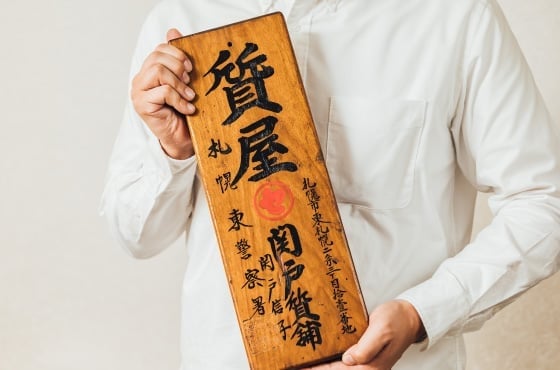 札幌市東札幌二条三丁目拾壹番地
質屋
セ
関戸質舗
関戸信子
札幌東警察署